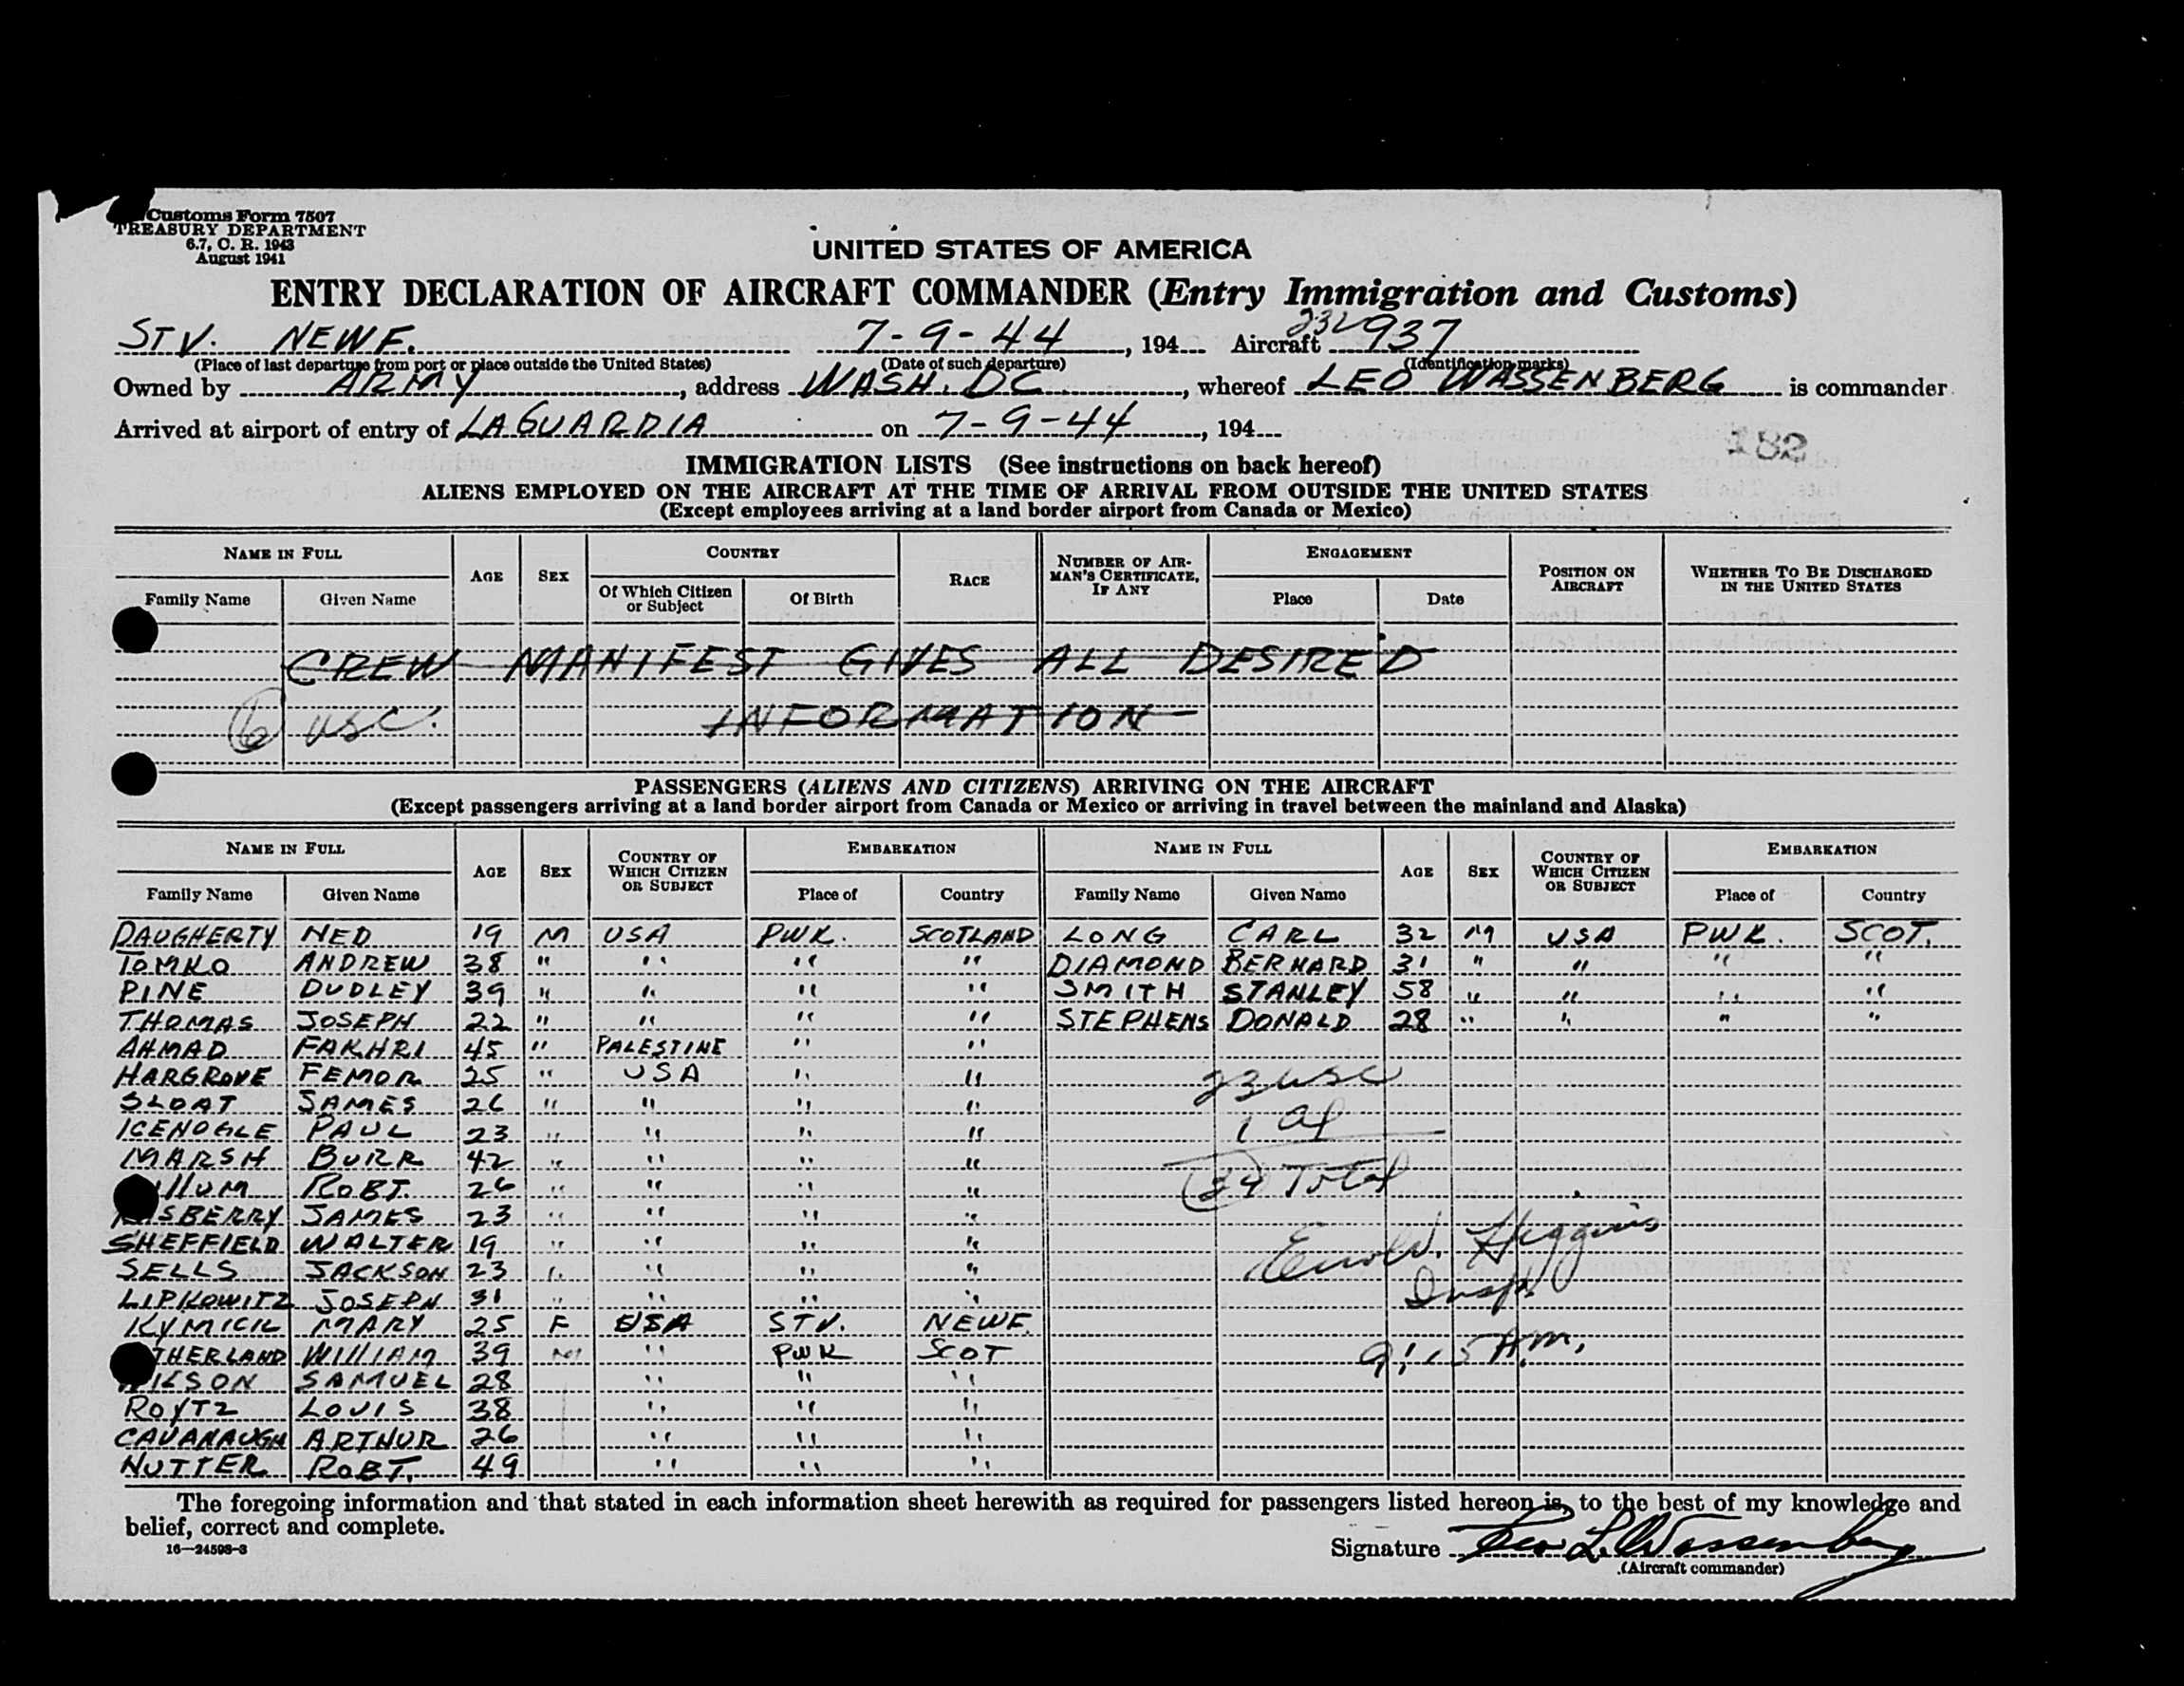 Customs Form 7507
TREASURY DEPARTMENT
6.7, C. R. 1943
August 1941
UNITED STATES OF AMERICA
ENTRY DECLARATION OF AIRCRAFT COMMANDER (Entry Immigration and Customs)
STV. NEWF. 7-9-44, 194 Aircraft 232937
(Place of last departure from port or place outside the United States) (Date of such departure) (Identification marks)
Owned by ARMY, address WASH. DC, whereof LEO WASSENBERG is commander
Arrived at airport of entry of LA GUARDIA on 7-9-44, 194
182
IMMIGRATION LISTS (See instructions on back hereof)
ALIENS EMPLOYED ON THE AIRCRAFT AT THE TIME OF ARRIVAL FROM OUTSIDE THE UNITED STATES
(Except employees arriving at a land border airport from Canada or Mexico)
NAME IN FULL AGE SEX COUNTRY RACE NUMBER OF AIRMAN'S CERTIFICATE, IF ANY ENGAGEMENT POSITION ON AIRCRAFT WHETHER TO BE DISCHARGED IN THE UNITED STATES
Family Name Given Name Of Which Citizen or Subject Of Birth Place Date
CREW MANIFEST GIVES ALL DESIRED
6 USC. INFORMATION -
PASSENGERS (ALIENS AND CITIZENS) ARRIVING ON THE AIRCRAFT
(Except passengers arriving at a land border airport from Canada or Mexico or arriving in travel between the mainland and Alaska)
NAME IN FULL AGE SEX COUNTRY OF WHICH CITIZEN OR SUBJECT EMBARKATION NAME IN FULL AGE SEX COUNTRY OF WHICH CITIZEN OR SUBJECT EMBARKATION
Family Name Given Name Place of Country Family Name Given Name Place of Country
DAUGHERTY NED 19 M USA PWK. SCOTLAND LONG CARL 32 M USA PWK. SCOT.
TOMKO ANDREW 38 " " " " DIAMOND BERNARD 31 " " " "
PINE DUDLEY 39 " " " " SMITH STANLEY 58 " " " "
THOMAS JOSEPH 22 " " " " STEPHENS DONALD 28 " " " "
AHMAD FAKHRI 45 " PALESTINE " "
HARGROVE FEMOR 25 " USA " " 23 USC
SLOAT JAMES 26 " " " "
ICENOGLE PAUL 23 " " " " 1 al
MARSH BURR 42 " " " "
ROBT. 26 " " " " 24 Total
JAMES 23 " " " "
SHEFFIELD WALTER 19 " " " " Higgins
SELLS JACKSON 23 " " " "
LIPKOWITZ JOSEPH 31 " " " " Insp.
KYMICK MARY 25 F USA STV. NEWF.
THERLAND WILLIAM 39 M " PWK SCOT 9:15 A.M.
SAMUEL 28 " " "
ROYTZ LOUIS 38 " " "
CAVANAUGH ARTHUR 26 " " "
NUTTER ROBT. 49 " " "
The foregoing information and that stated in each information sheet herewith as required for passengers listed hereon is, to the best of my knowledge and
belief, correct and complete.
16—24598-3
Signature Leo L. Wassenberg
(Aircraft commander)